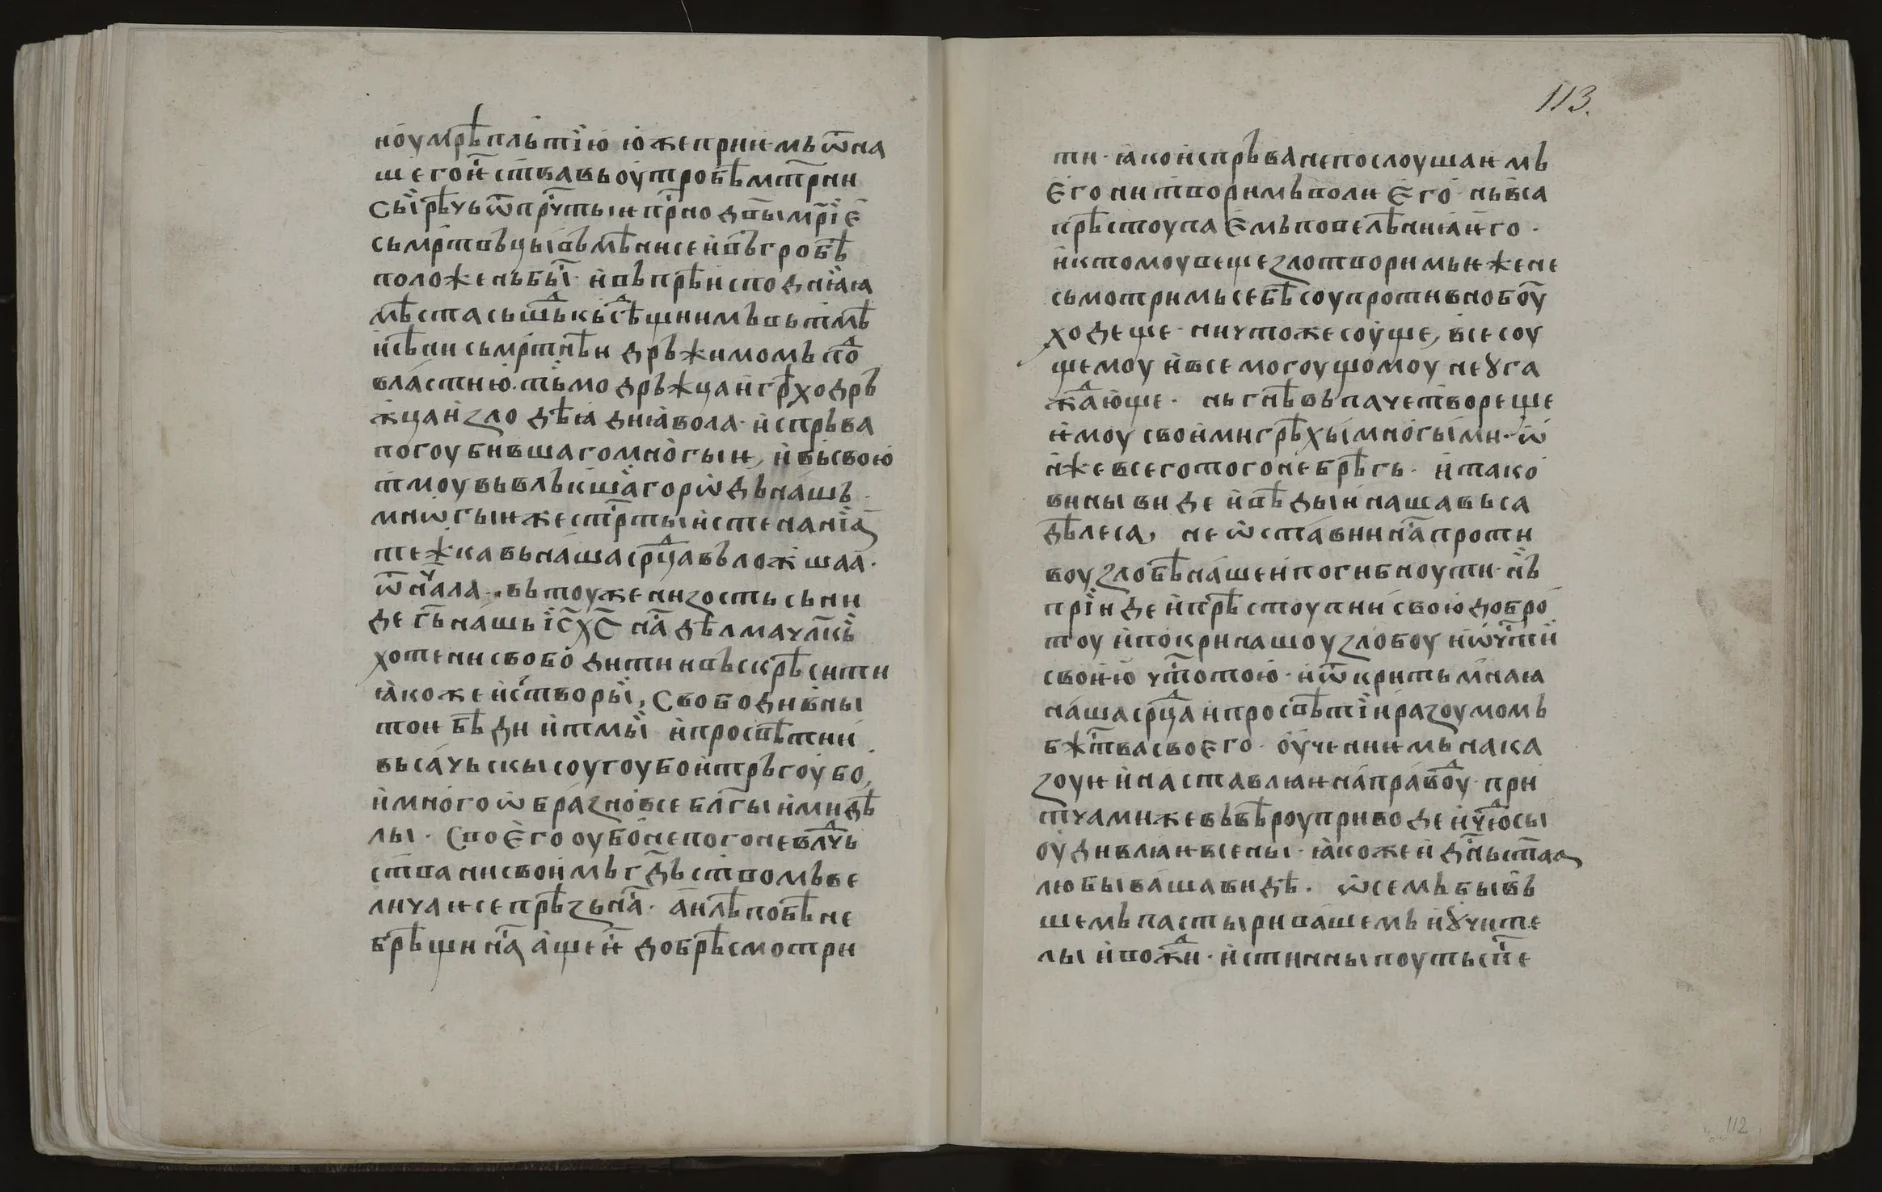 ноумрѣпльтїю ю̀жепрїиемь ѿна
шегоѥ҆ствавьѹтробѣмт҃рни
Сы҆рѣчь ѿпрⷭ҇чтыѥпрⷭ҇нодв҃ымр҃їе
сьмрт҃вьцывьмѣнисеи҆вьгробѣ
положеньбыⷭ҇ и҆вьпрѣи҆споднꙗа
мѣстасьшⷣькьсѣщнимьвьтмѣ
и҆сѣнисьмрт҃нѣи дрьжимомьпоⷣ
властию҆ тьмодрьжцаи҆грⷯѣходрь
жцаи҆ꙁло дѣꙗ диꙗвола и҆спрьва
погоубившагомно́гыѥ, и҆вьсвою
тмоувьвлькшагорѡдьнашь
мнѡгыѥжестрⷭ҇тыи҆стенанїа
тежкавьнашасрⷣцавьложшаа
ѿнⷱала вьтоуженизостьсьни
деgь҃нашьі҆с҃х҃с наⷭ҇дѣлмачл҃кь
хотенисвободитиивьскрѣсити
ꙗкожеи҆сⷭ҇твори, Свободивны
тоѥбѣди и҆тмы и҆просвѣтии
вьсачьскысоугоубои҆трьгоубо,
и҆много̀ѡбразновсеблг҃ыи҆мидѣ
лы Своѐгооубонепогоневлⷣчь
стванисвоимьгд҃ьствомьве
личаѥсепрѣзьнаⷭ҇ а҆нлѣпобѣне
брѣщинаⷭ҇ а҆щеѥ҆ добрѣсмотри
113.
ти ꙗкои҆спрьванепослоушаѥмь
ѐгонитворимьволиѐго ньвса
прѣстоупаѐмьповелѣнꙗѥго
и҆ктомоувещезлотворимьѥжене
сьмотримьсебѣсоупротивнобоу
ходеще ничтожесоуще, всесоу
щемоуи҆всемогоущомоунеꙋга
жⷣающе ньгнѣвьпачетвореще
ѥмоусвоимигрѣхымногыми ѡ
нжевсеготогонебрѣгь и҆тако
виныводе и҆вѣдыи҆нашавьса
дѣлеса, неѡставиинаⷭ҇проти
воузлобѣнашеи҆погибноути нь
прїиде и҆прѣстоупии҆своюдобро
тоуи҆покринашоузлобоуи҆ѡчⷭ҇тїи
своѥючⷭ҇тотою и҆ѿкритьмнаа
нашасрⷣцаи҆просвѣтїиразоумомь
бжⷭ҇твасвоего оученнемьнака
зоуѥи҆наставлꙗѥнаправⷣоу при
тчамижевьвѣроуприводеи҆чюⷣсы
оудивлꙗѥвсены ꙗкожеи҆дн҃ьстаа
любывашавидѣ ѡсемьбывь
шемьпастыривашемьи҆ꙋчите
лыи҆вожⷣи и҆стинныпоутьспⷭ҇е
112